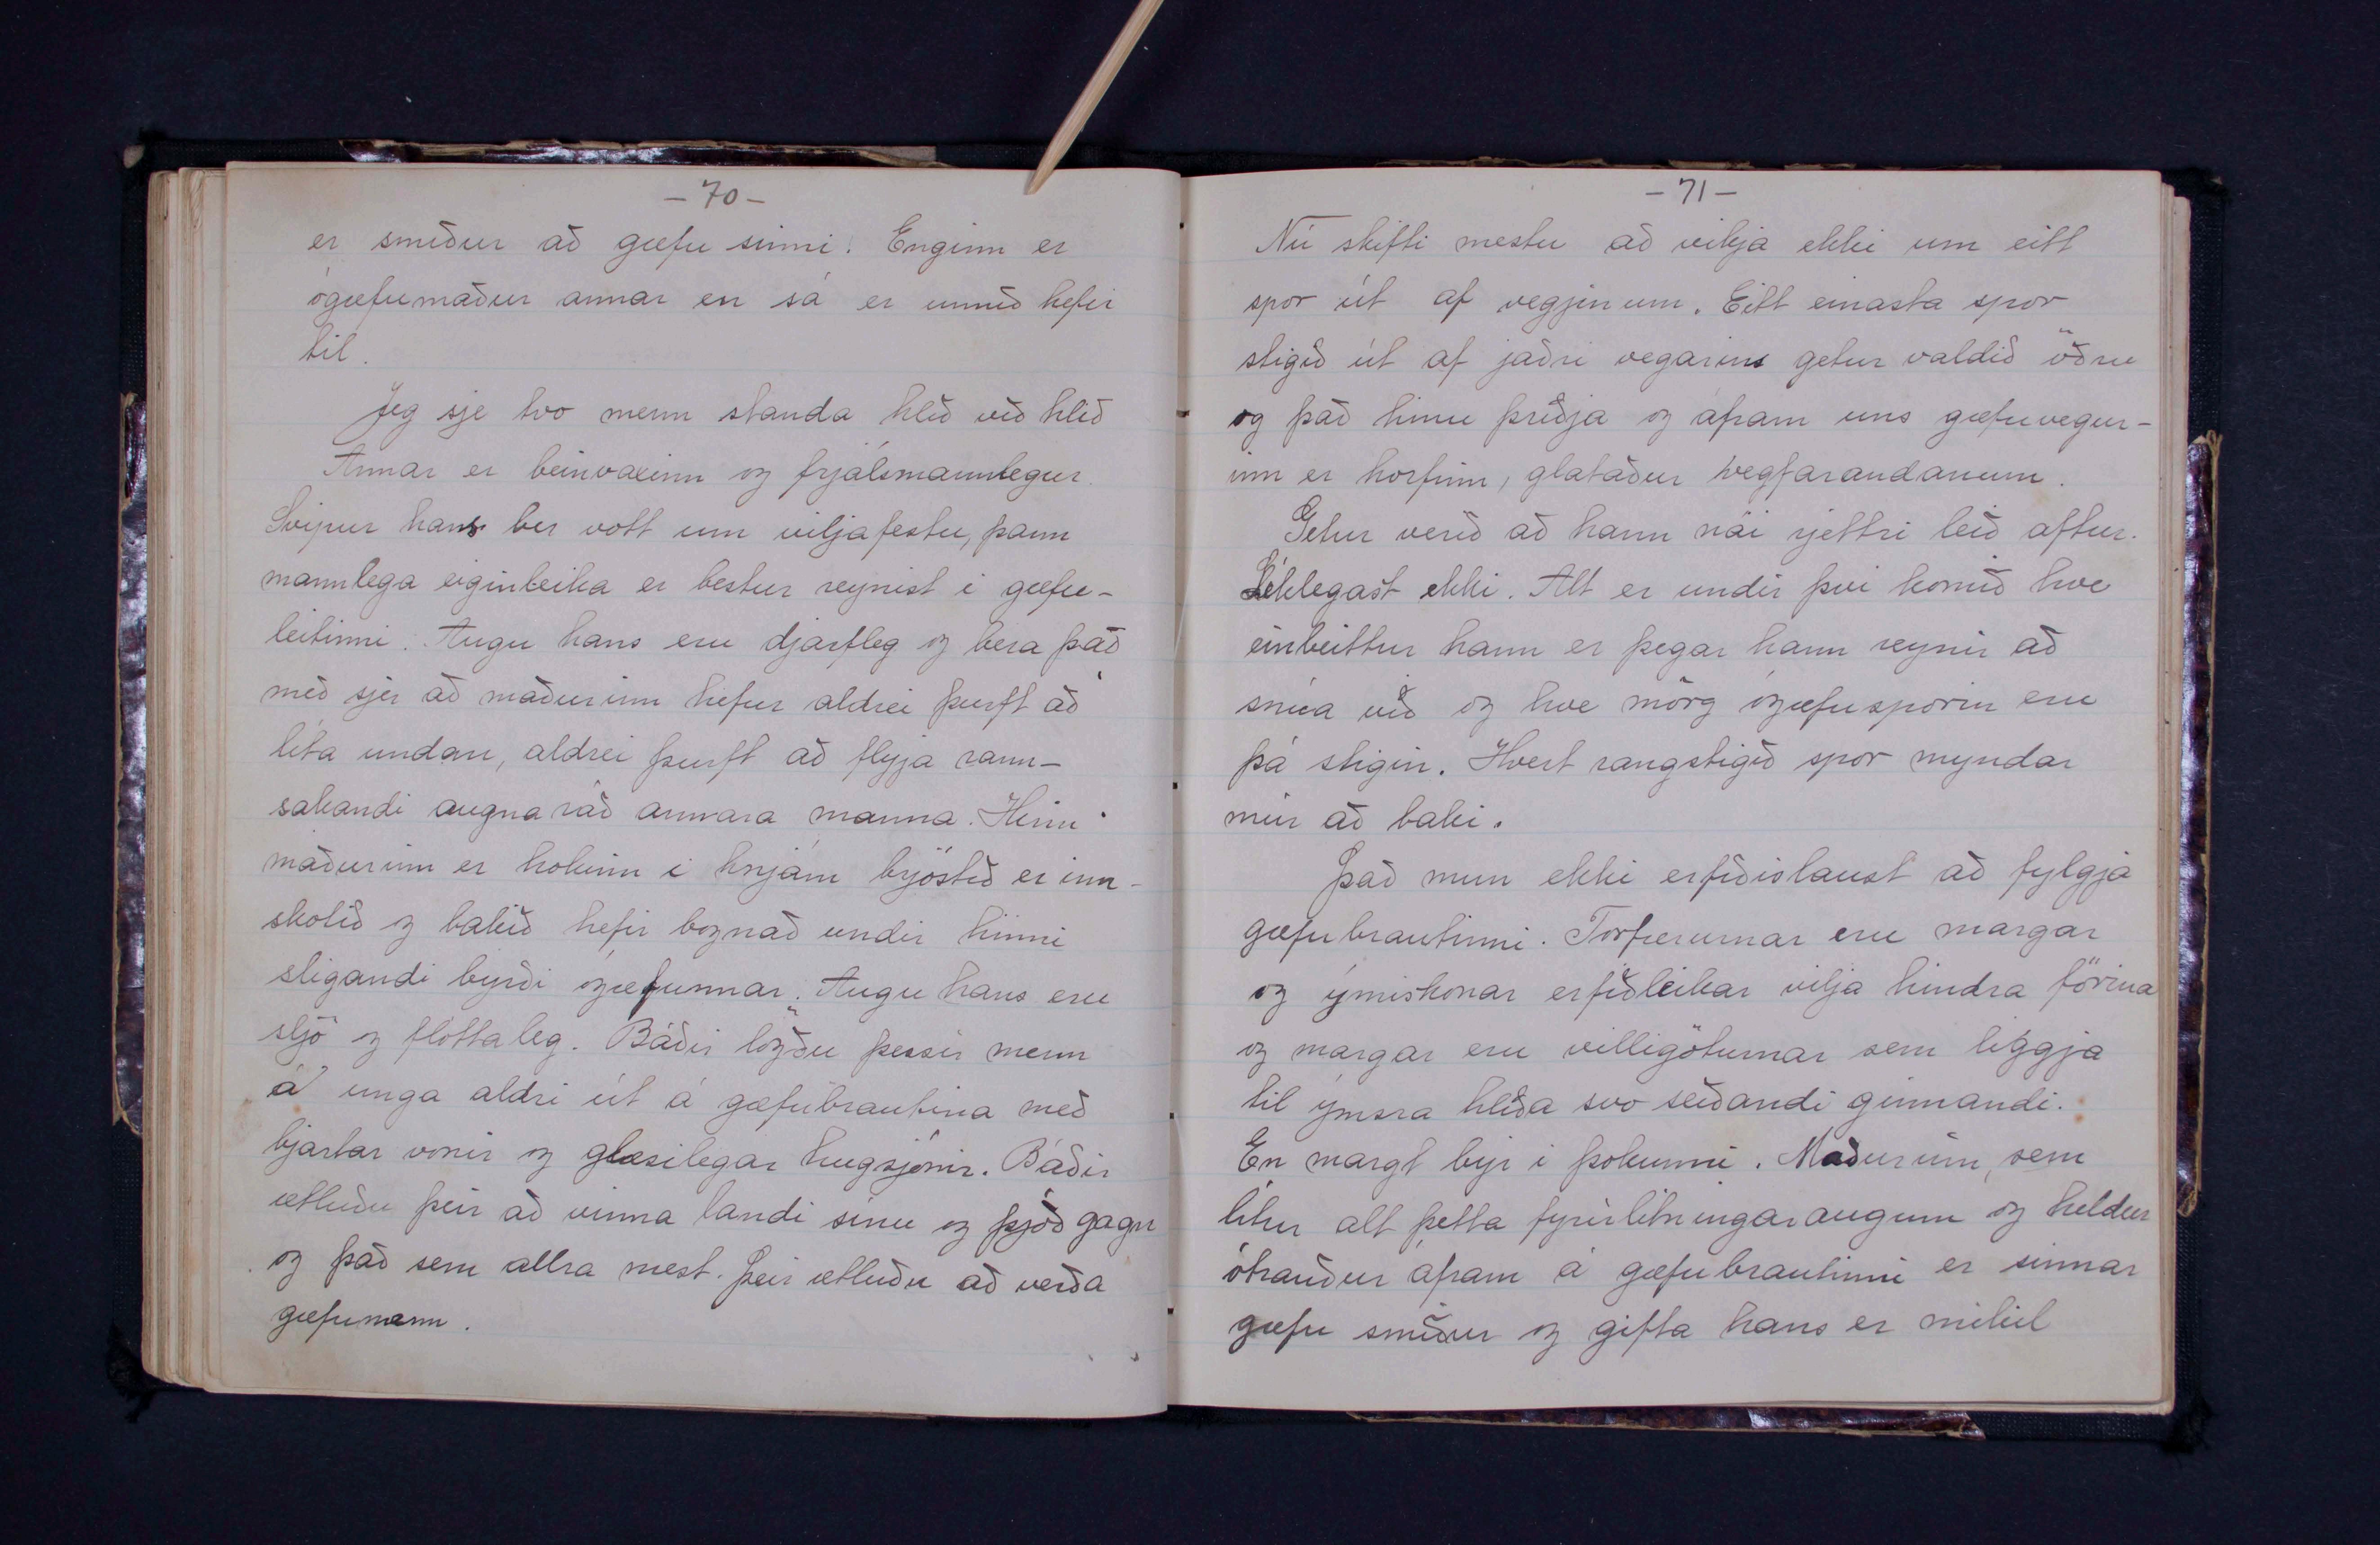 - 70 -
er smiður að gæfu sinni. Enginn er
ógæfumaður annar en sá er unnið hefir
til.
Jeg sje tvo menn standa hlið við hlið
Annar er beinvaxinn og frjálsmannlegur.
Svipur hans ber vott um viljafestu, þann
mannlega eiginleika er bestur reynist í gæfu-
leitinni. Augu hans eru djarfleg og bera það
með sjer að maðurinn hefur aldrei þurft að
líta undan, aldrei þurft að flýja rann-
sakandi augnaráð annara manna. Hinn
maðurinn er hokinn í hnjám brjóstið er inn-
skotið og bakið hefir bognað undir hinni
sligandi byrði ógæfunnar. Augu hans eru
sljó og flóttaleg. Báðir lögðu þessir menn
á unga aldri út á gæfubrautina með
bjartar vonir og glæsilegar hugsjónir. Báðir
ætluðu þeir að vinna landi sínu og þjóð gagn
og það sem allra mest. Þeir ætluðu að verða
gæfumenn.
- 71 -
Nú skifti mestu að víkja ekki um eitt
spor út af vegjinum. Eitt einasta spor
stigið út af jaðri vegarins getur valdið öðru
og það hinu þriðja og áfram uns gæfuvegur-
inn er horfinn, glataður vegfarandanum.
Getur verið að hann nái rjettri leið aftur.
Líklegast ekki. Alt er undir því komið hve
einbeittur hann er þegar hann reynir að
snúa við og hve mörg ógæfusporin eru
þá stigin. Hvert rangstigið spor myndar
múr að baki.
Það mun ekki erfiðislaust að fylgja
gæfubrautinni. Torfærurnar eru margar
og ýmiskonar erfiðleikar vilja hindra förina
og margar eru villigöturnar sem liggja
til ýmsra hliða svo seiðandi ginnandi.
En margt býr í þokunni. Maðurinn, sem
lítur alt þetta fyrirlitningaraugum og heldur
ótrauður áfram á gæfubrautinni er sinnar
gæfu smiður og gifta hans er mikil